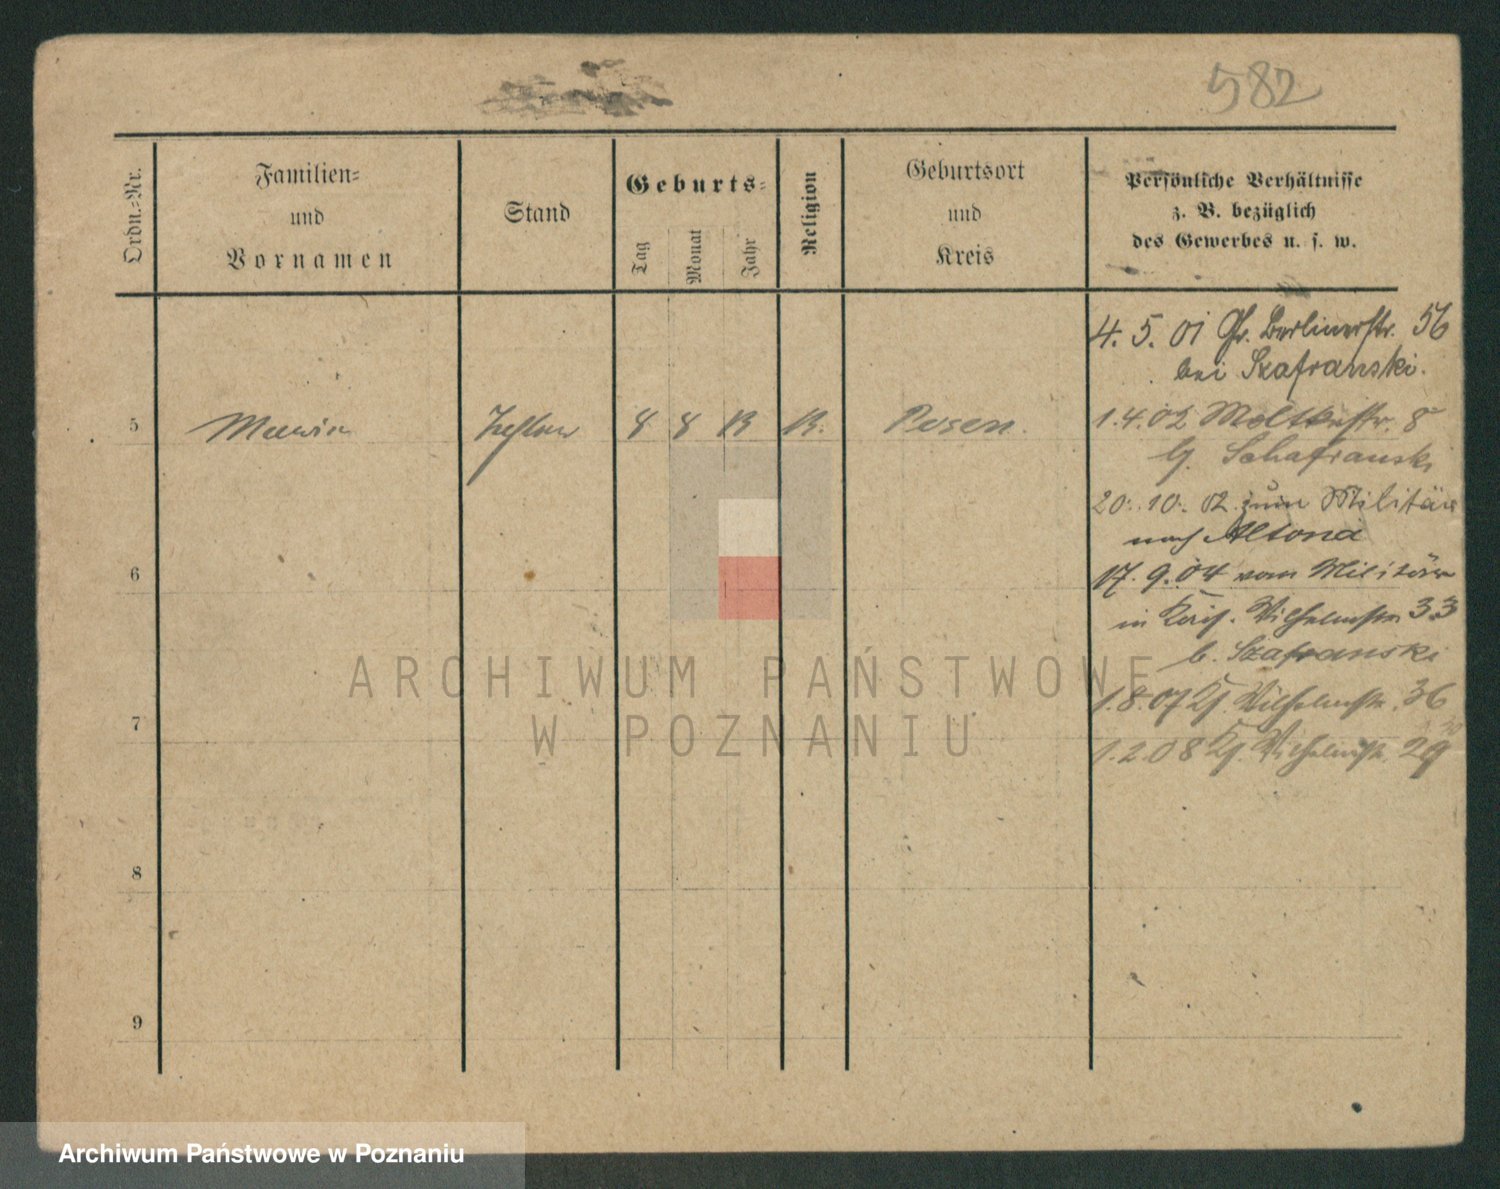 582
Ordn.=Nr.
Familien=
und
Vornamen
Stand
Geburts=
Tag
Monat
Jahr
Religion
Geburtsort
und
Kreis
Persönliche Verhältnisse
z. B. bezüglich
des Gewerbes u. s. w.
4. 5. 01 Gr. Berlinerstr. 56
bei Szafranski.
5
8 8
Posen.
1.4.02 Moltkestr. 8
Schafranski
20. 10. 02 zum Militär
nach Altona
6
17. 9. 04 vom Militär
in Wilhelmstr 33
b. Szafranski
ARCHIWUM PAŃSTWOWE
W POZNANIU
1.8.07 Wilhelmstr. 36
7
1.2.08 Wilhelmstr. 29
8
9
Archiwum Państwowe w Poznaniu